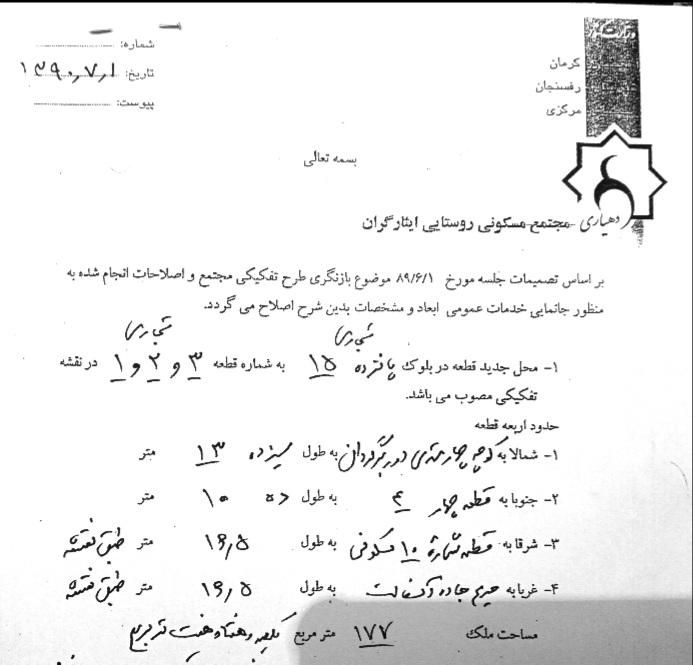 وزارت کشور
کرمان
رفسنجان
مرکزی
شماره:
تاریخ: ۱۳۹۰٫۷٫۱
پیوست:
بسمه تعالی
دهیاری مجتمع مسکونی روستایی ایثارگران
بر اساس تصمیمات جلسه مورخ ۸۹/۶/۱ موضوع بازنگری طرح تفکیکی مجتمع و اصلاحات انجام شده به
منظور جانمایی خدمات عمومی ابعاد و مشخصات بدین شرح اصلاح می گردد.
تجاری تجاری
۱- محل جدید قطعه در بلوک پانزده ۱۵ به شماره قطعه ۳ و ۲ و ۱ در نقشه
تفکیکی مصوب می باشد.
حدود اربعه قطعه
۱- شمالا به کوچه چهار متری دور برگردان به طول سیزده ۱۳ متر
۲- جنوبا به قطعه چهار ۴ به طول ده ۱۰ متر
۳- شرقا به قطعه شماره ۱۰ مسکونی به طول ۱۶٫۵ متر طبق نقشه
۴- غربا به حریم جاده آسفالت به طول ۱۶٫۵ متر طبق نقشه
مساحت ملک ۱۷۷ متر مربع یکصد و هفتاد و هفت متر مربع